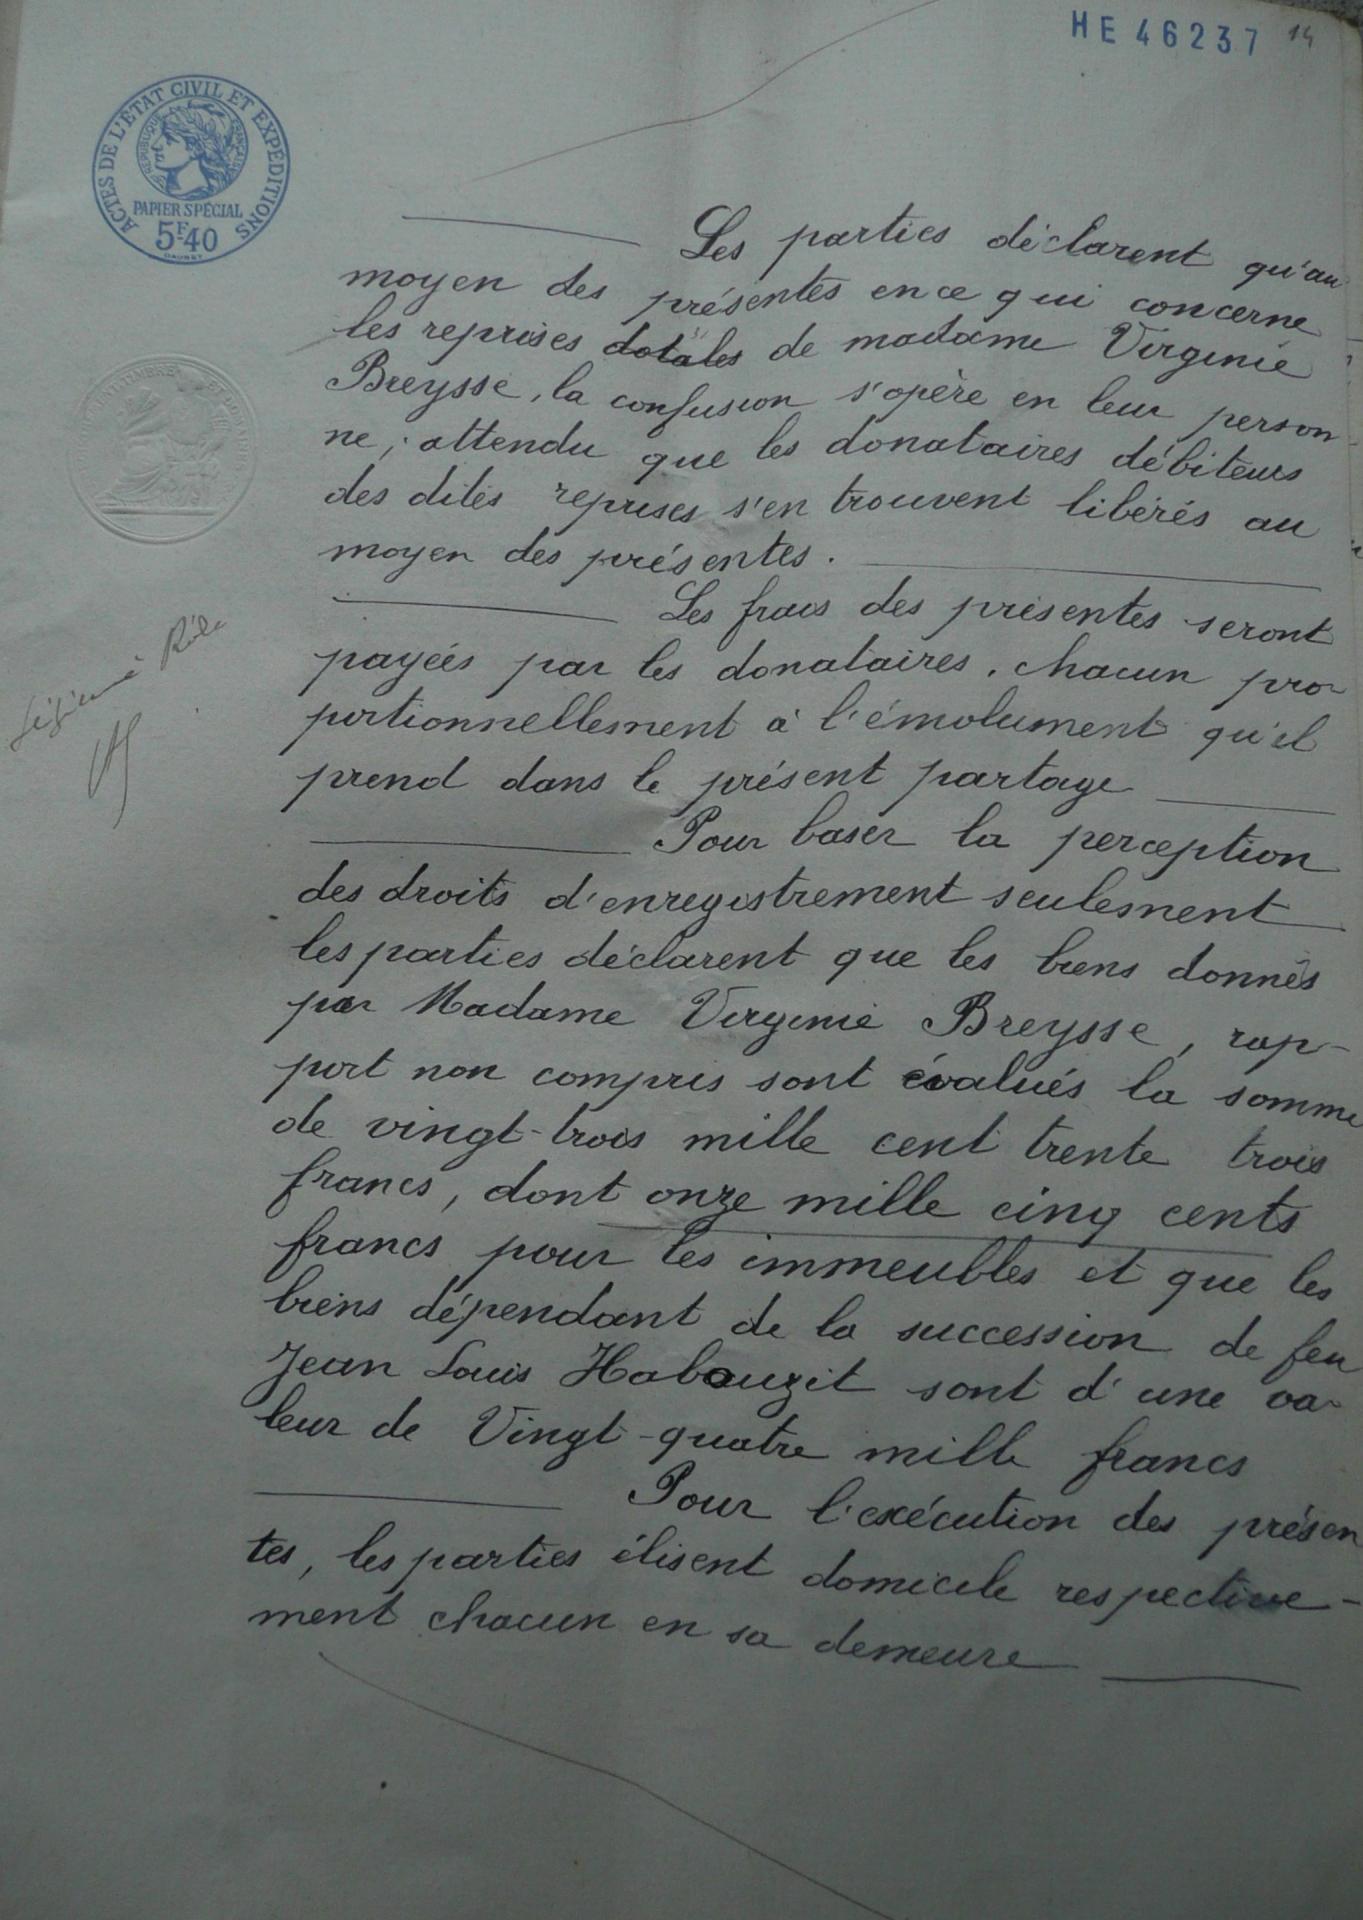 HE 46237 14
ACTES DE L'ÉTAT CIVIL ET EXPÉDITIONS
RÉPUBLIQUE FRANÇAISE
PAPIER SPÉCIAL
5F.40
DAUSSY
Les parties déclarent qu'au
moyen des présentes en ce qui concerne
les reprises dotales de madame Virginie
Breysse, la confusion s'opère en leur person-
ne; attendu que les donataires débiteurs
des dites reprises s'en trouvent libérés au
moyen des présentes.
Les frais des présentes seront
payées par les donataires, chacun pro-
portionnellement à l'émolument qu'il
prend dans le présent partage
Rôle
Pour baser la perception
des droits d'enregistrement seulement
les parties déclarent que les biens donnés
par Madame Virginie Breysse, rap-
port non compris sont évalués la somme
de vingt-trois mille cent trente trois
francs, dont onze mille cinq cents
francs pour les immeubles et que les
biens dépendant de la succession de feu
Jean Louis Habouzit sont d'une va-
leur de Vingt-quatre mille francs
Pour l'exécution des présen
tes, les parties élisent domicile respective-
ment chacun en sa demeure